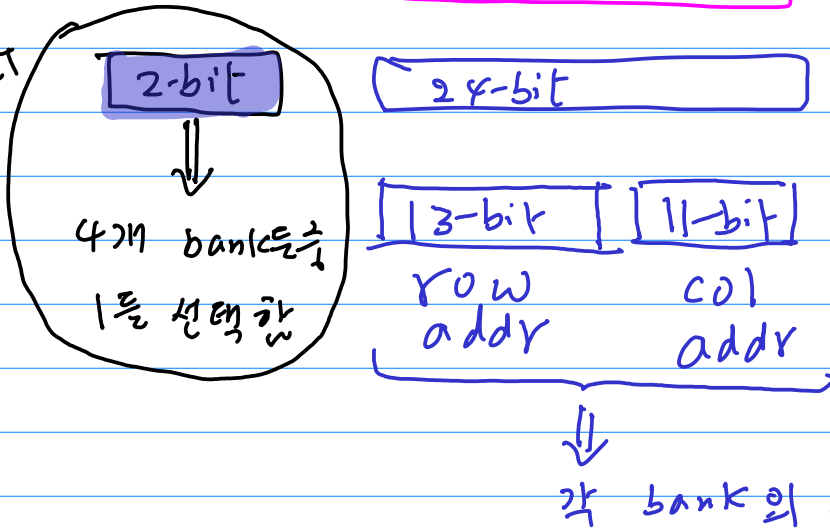 2-bit
24-bit
4개 bank들중
1를 선택함
13-bit
11-bit
row
addr
col
addr
각 bank의